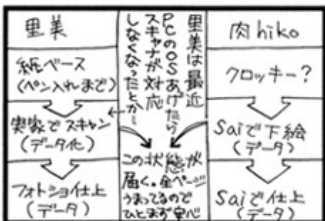 里美
紙ベース
(ペン入れまで)
実家でスキャン
(データ化)
フォトショ仕上
(データ)
里美は最近
PCのOSあげたら
スキャナが対応
しなくなったとか…
この状態が
届く。全ページ
うまってるので
ひとまず安心
肉hiko
クロッキー?
Saiで下絵
(データ)
Saiで仕上
(データ)